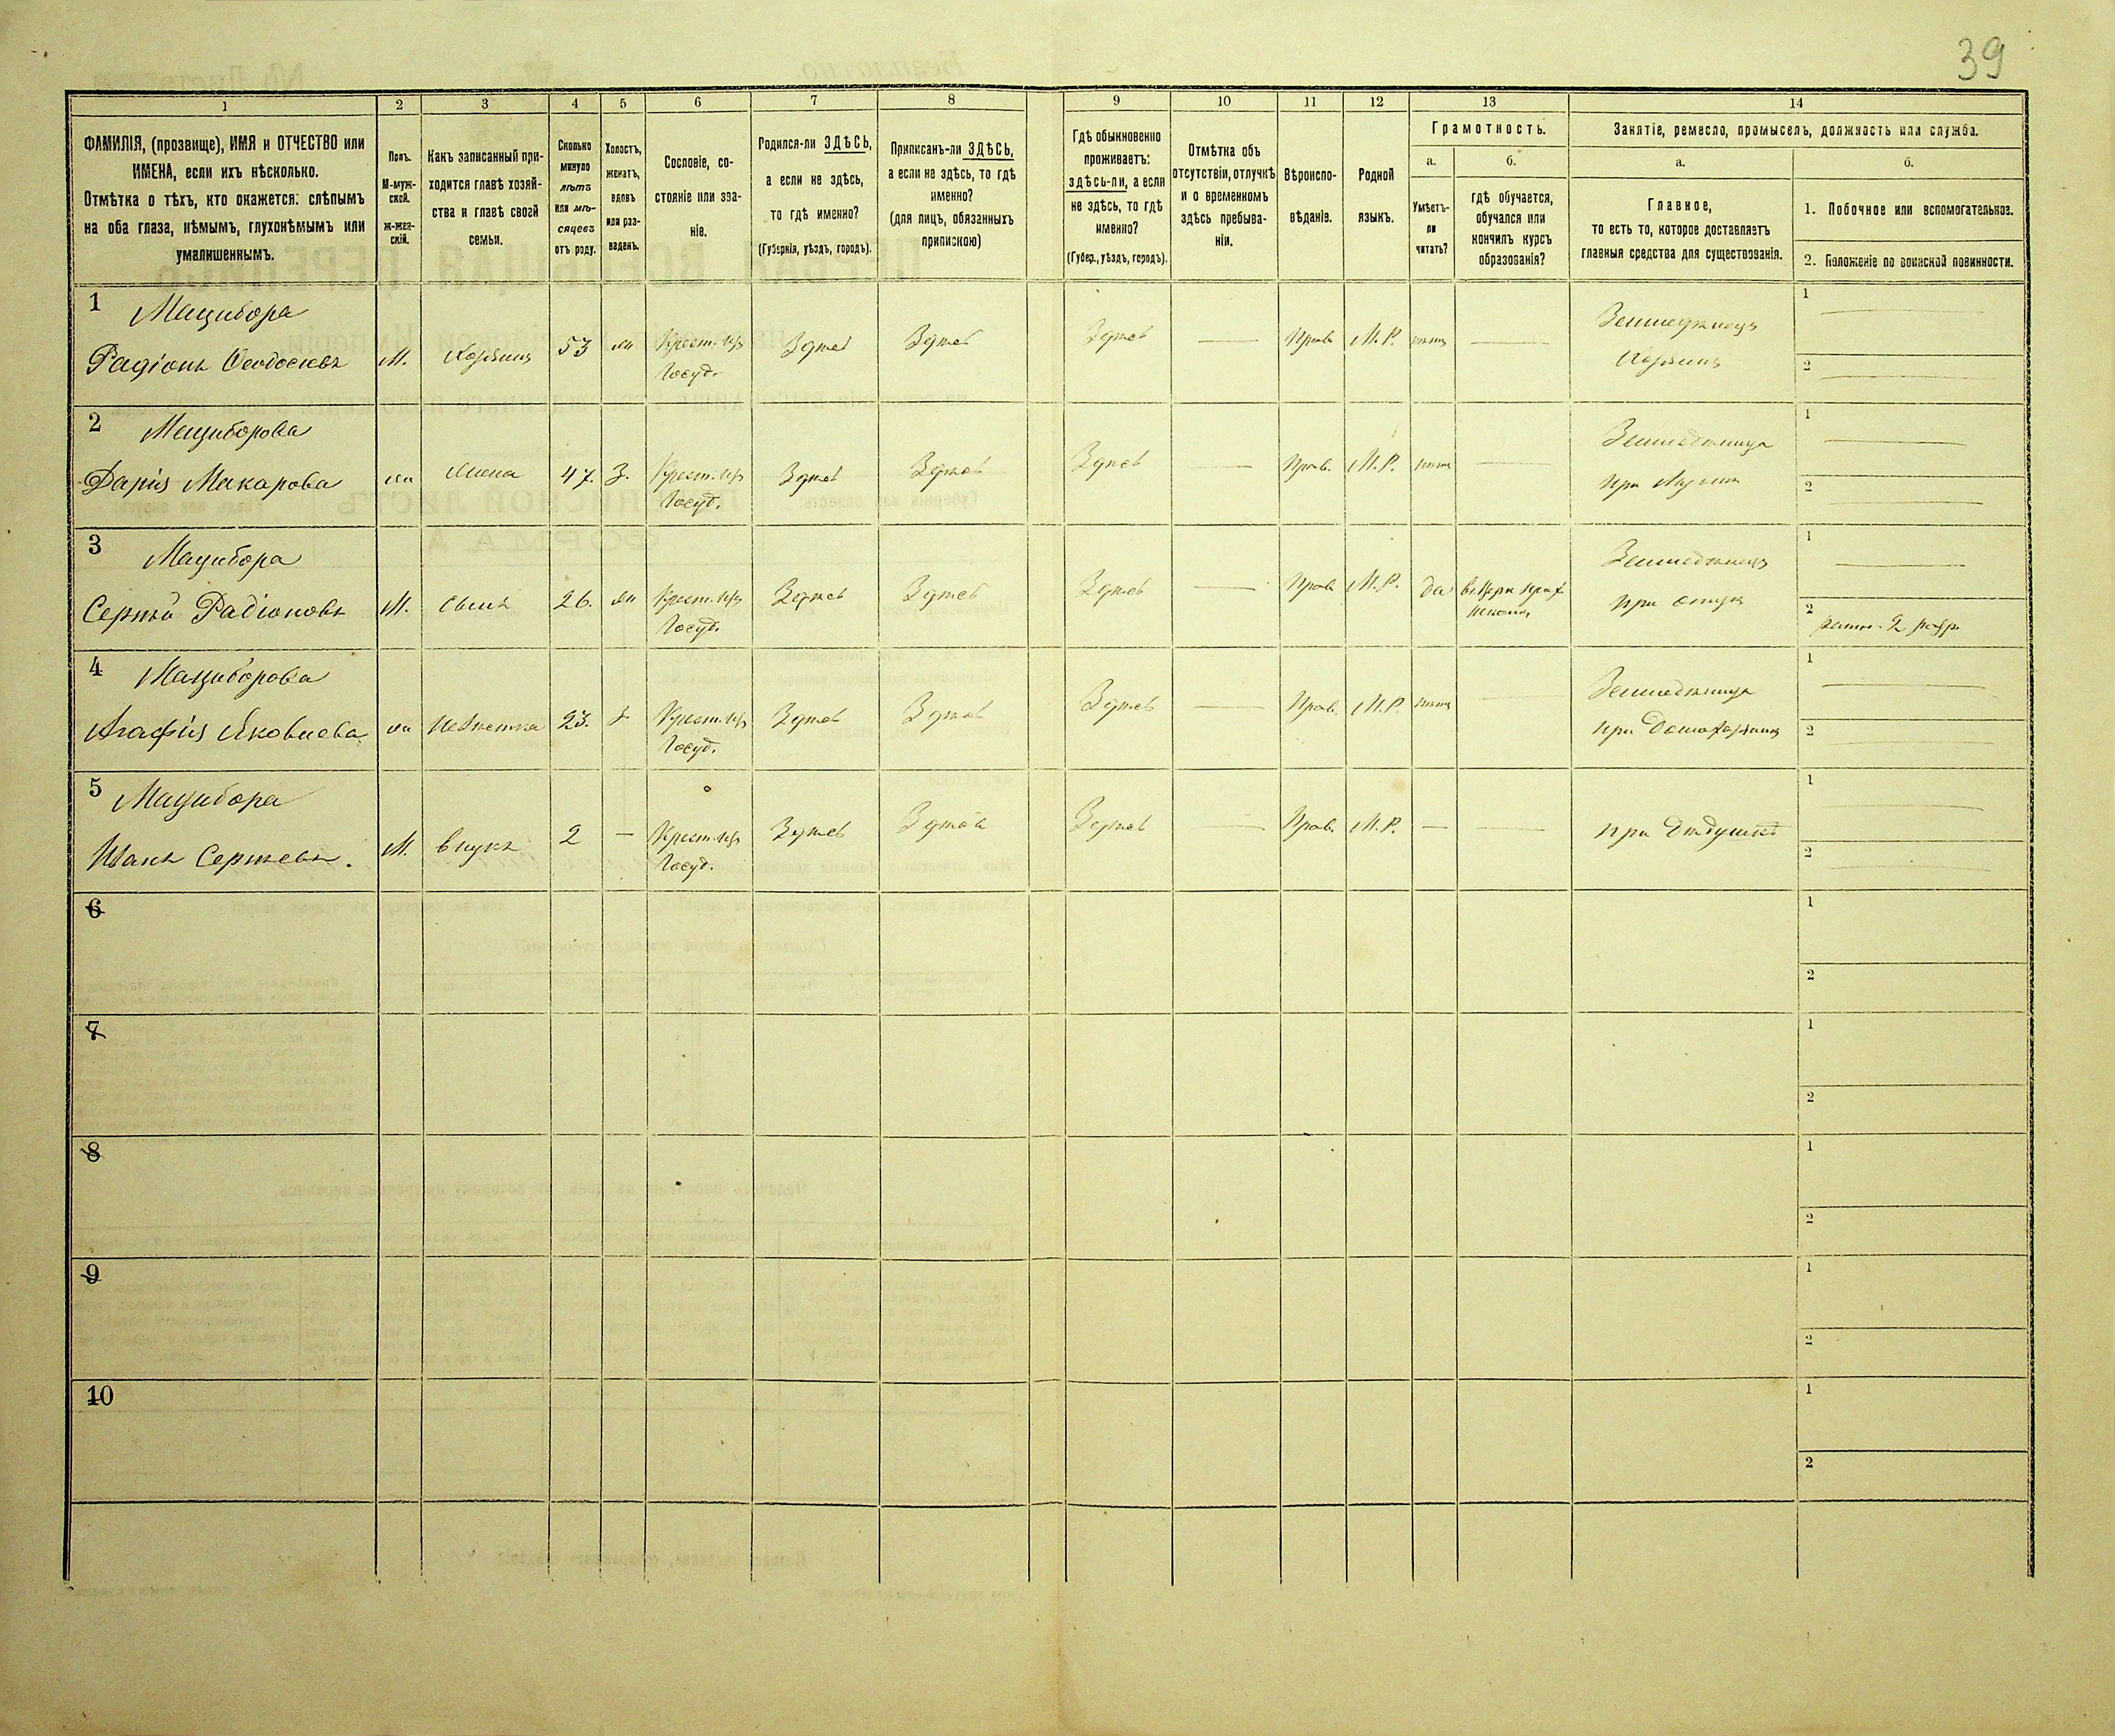 39
1 2 3 4 5 6 7 8 9 10 11 12 13 14
ФАМИЛІЯ, (прозвище), ИМЯ и ОТЧЕСТВО или
ИМЕНА, если ихъ нѣсколько.
Отмѣтка о тѣхъ, кто окажется: слѣпымъ
на оба глаза, нѣмымъ, глухонѣмымъ или
умалишеннымъ.
Полъ.
М-муж-
ской.
ж-жен-
скій.
Какъ записанный при-
ходится главѣ хозяй-
ства и главѣ своей
семьи.
Сколько
минуло
лѣтъ
или мѣ-
сяцевъ
отъ роду.
Холостъ,
женатъ,
вдовъ
или раз-
веденъ.
Сословіе, со-
стояніе или зва-
ніе.
Родился-ли ЗДѢСЬ,
а если не здѣсь,
то гдѣ именно?
(Губернія, уѣздъ, городъ).
Приписанъ-ли ЗДѢСЬ,
а если не здѣсь, то гдѣ
именно?
(для лицъ, обязанныхъ
припискою)
Гдѣ обыкновенно
проживаетъ:
здѣсь-ли, а если
не здѣсь, то гдѣ
именно?
(Губер., уѣздъ, городъ).
Отмѣтка объ
отсутствіи, отлучкѣ
и о временномъ
здѣсь пребыва-
ніи.
Вѣроиспо-
вѣданіе.
Родной
языкъ.
Грамотность.
а.
Умѣетъ-
ли
читать?
б.
гдѣ обучается,
обучался или
кончилъ курсъ
образованія?
Занятіе, ремесло, промыселъ, должность или служба.
а.
Главное,
то есть то, которое доставляетъ
главныя средства для существованія.
б.
1. Побочное или вспомогательное.
2. Положеніе по воинской повинности.
1 Мацибора
Радіонъ Феодосіевъ М. Хозяинъ 53 жн Крест. изъ Госуд. Здѣсь Здѣсь Здѣсь — Прав. М.Р. нѣтъ — Земледѣлецъ Хозяинъ
1 —
2 —
2 Мациборова
Дарія Макарова жн Жена 47. З. Крест. изъ Госуд. Здѣсь Здѣсь Здѣсь — Прав. М.Р. нѣтъ — Земледѣлица при Мужѣ
1 —
2 —
3 Мацибора
Сергѣй Радіоновъ М. Сынъ 26. жн Крест. изъ Госуд. Здѣсь Здѣсь Здѣсь — Прав. М.Р. да Земледѣлецъ при отцѣ
1 —
2 ратн. 2 разр.
4 Мациборова
Агафія Яковлева жн Невѣстка 23. З. Крест. изъ Госуд. Здѣсь Здѣсь Здѣсь — Прав. М.Р. нѣтъ — Земледѣлица при Домохозяинѣ
1 —
2 —
5 Мацибора
Иванъ Сергѣевъ. М. внукъ 2 — Крест. изъ Госуд. Здѣсь Здѣсь Здѣсь — Прав. М.Р. — — при Дѣдушкѣ
1 —
2 —
6
1
2
7
1
2
8
1
2
9
1
2
10
1
2